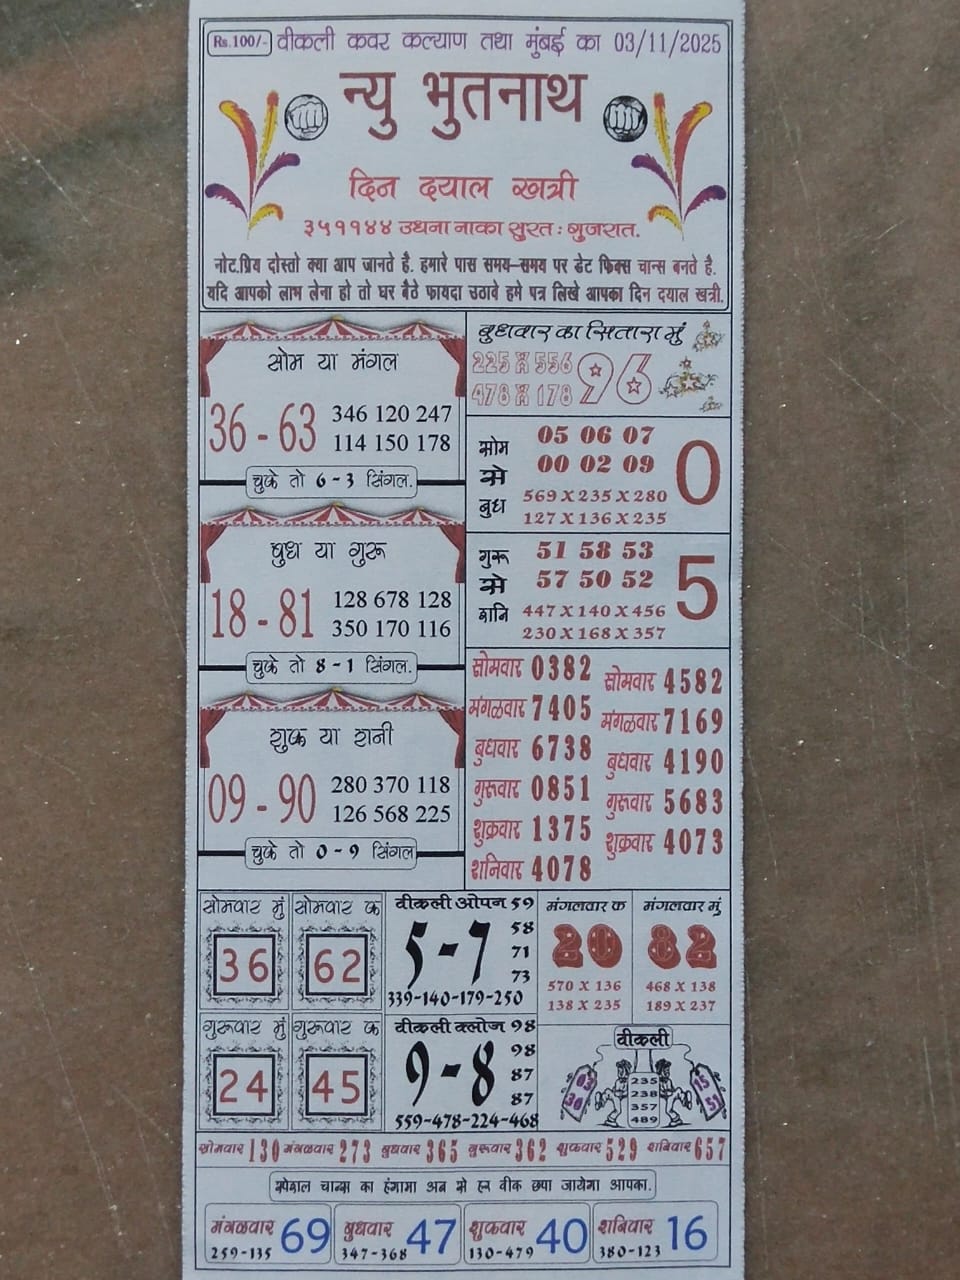 Rs.100/- वीकली कवर कल्याण तथा मुंबई का 03/11/2025
न्यु भुतनाथ
दिन दयाल खत्री
३५११४४ उधना नाका सुरत : गुजरात.
नोट.प्रिय दोस्तो क्या आप जानते है. हमारे पास समय-समय पर डेट फिक्स चान्स बनते है.
यदि आपको लाभ लेना हो तो घर बैठे फायदा उठावे हमे पत्र लिखे आपका दिन दयाल खत्री.
सोम या मंगल
36 - 63
346 120 247
114 150 178
चुके तो 6 - 3 सिंगल.
बुध या गुरू
18 - 81
128 678 128
350 170 116
चुके तो 8 - 1 सिंगल.
शुक्र या शनी
09 - 90
280 370 118
126 568 225
चुके तो 0 - 9 सिंगल
बुधवार का सितारा मुं
225 X 556
478 X 178
96
सोम से बुध
05 06 07
00 02 09
569 X 235 X 280
127 X 136 X 235
0
गुरू से शनि
51 58 53
57 50 52
447 X 140 X 456
230 X 168 X 357
5
सोमवार 0382
मंगळवार 7405
बुधवार 6738
गुरूवार 0851
शुक्रवार 1375
शनिवार 4078
सोमवार 4582
मंगळवार 7169
बुधवार 4190
गुरूवार 5683
शुक्रवार 4073
सोमवार मुं
36
सोमवार क
62
वीकली ओपन 59
5 - 7
58
71
73
339-140-179-250
मंगलवार क
20
570 X 136
138 X 235
मंगलवार मुं
82
468 X 138
189 X 237
गुरूवार मुं
24
गुरूवार क
45
वीकली क्लोज 98
9 - 8
98
87
87
559-478-224-468
वीकली
03
30
235
238
357
489
15
51
सोमवार 130 मंगळवार 273 बुधवार 365 गुरूवार 362 शुक्रवार 529 शनिवार 657
स्पेशल चान्स का हंगामा अब से हर वीक छपा जायेगा आपका.
मंगळवार 69
259-135
बुधवार 47
347-368
शुक्रवार 40
130-479
शनिवार 16
380-123